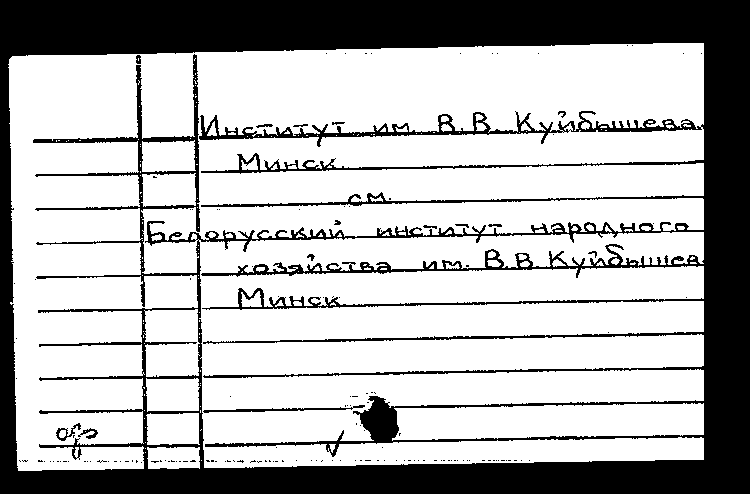 Институт им. В.В. Куйбышева.
Минск.
см.
Белорусский институт народного
хозяйства им. В.В. Куйбышева
Минск